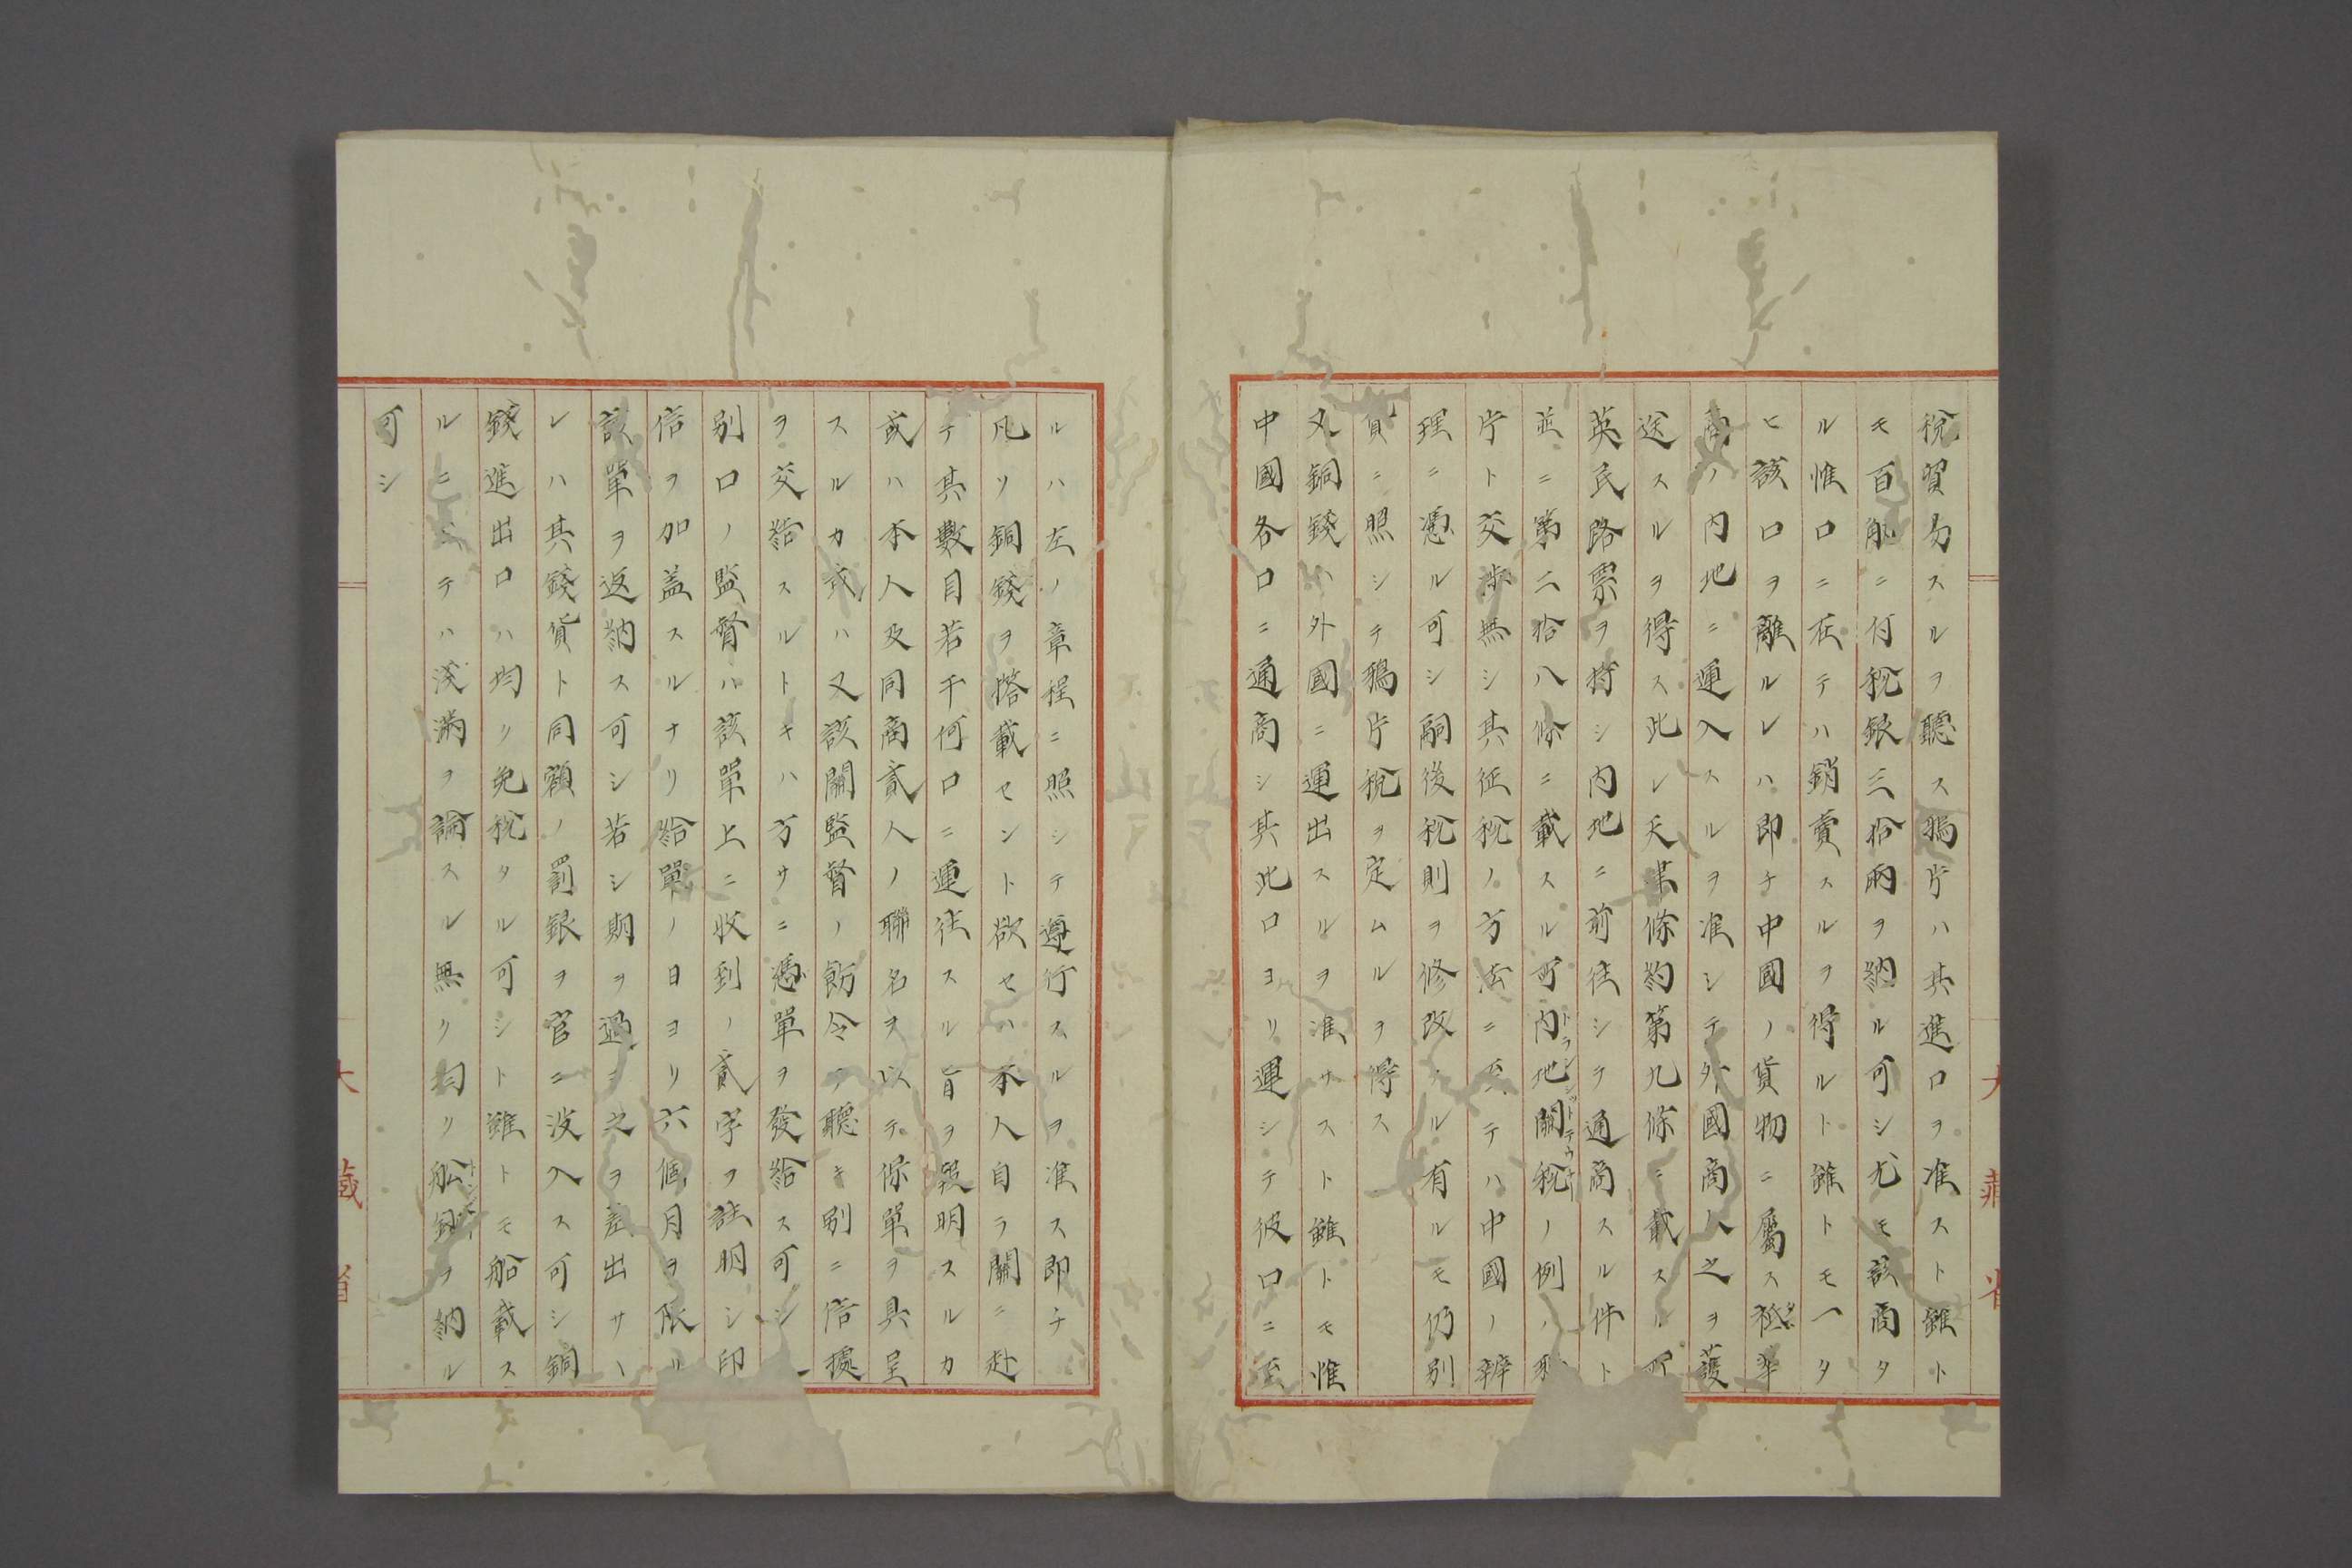 税貿易スルヲ聽ス鴉片ハ其進口ヲ准スト雖ト
モ百觔ニ付税銀三拾兩ヲ納ル可シ尤モ該商タ
ル惟口ニ在テハ銷賣スルヲ得ルト雖トモ一タ
ヒ該口ヲ離ルレハ即チ中國ノ貨物ニ屬ス祗華
商ノ内地ニ運入スルヲ准シテ外國商人之ヲ護
送スルヲ得ス此レ天津條約第九條ニ載スル所
英民路票ヲ持シ内地ニ前往シテ通商スル件ト
並ニ第二拾八條ニ載スル所内地關税ノ例ノ
片ト交渉無シ其征税ノ方法ニ至テハ中國ノ辨
理ニ憑ル可シ嗣後税則ヲ修改スル有ルモ仍別
貨ニ照シテ鴉片税ヲ定ムルヲ得ス
又銅錢ハ外國ニ運出スルヲ准サスト雖トモ惟
中國各口ニ通商シ其此口ヨリ運シテ彼口ニ至
大藏省
ルハ左ノ章程ニ照シテ遵行スルヲ准ス即チ
凡ソ銅錢ヲ搭載セント欲セハ本人自ラ關ニ赴
テ其數目若干何口ニ運往スル旨ヲ報明スルカ
或ハ本人及同商貳人ノ聯名ヲ以テ保單ヲ具呈
スルカ或ハ又該關監督ノ飭令ヲ聽キ別ニ信據
ヲ交給スルトキハ方サニ憑單ヲ發給ス可シ
別口ノ監督ハ該單上ニ收到ノ貳字ヲ註明シ印
信ヲ加蓋スルナリ給單ノ日ヨリ六個月ヲ限リ
該單ヲ返納ス可シ若シ期ヲ過キ之ヲ差出サヽ
レハ其錢貨ト同額ノ罰銀ヲ官ニ沒入ス可シ銅
錢進出口ハ均リ免税タル可シト雖トモ船載ス
ルニ テハ淺滿ヲ論スル無リ均リ船鈔ヲ納ル
可シ
大藏省